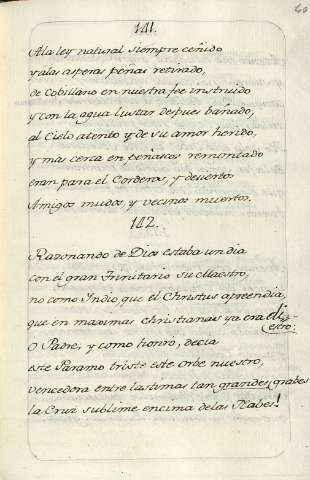 40
141.
A la ley natural siempre ceñido
y a las asperas peñas retirado,
de Cobillano en nuestra fee instruido
y con la agua lustar despues bañado,
al Cielo atento y de su amor herido,
y mas cerca en peñascos remontado
eran para el Corderos, y desiertos
Amigos mudos y vecinos muertos.
142.
Razonando de Dios estaba un dia
con el gran Trinitario su Maestro,
no como Indio que el Christus aprendia,
que en maximas christianas ya era di
estro:
O Padre, y como honro, decia
este Paramo triste este Orbe nuestro,
vencedora entre lastimas tan grandes, grabes
la Cruz sublime encima de las Nabes!